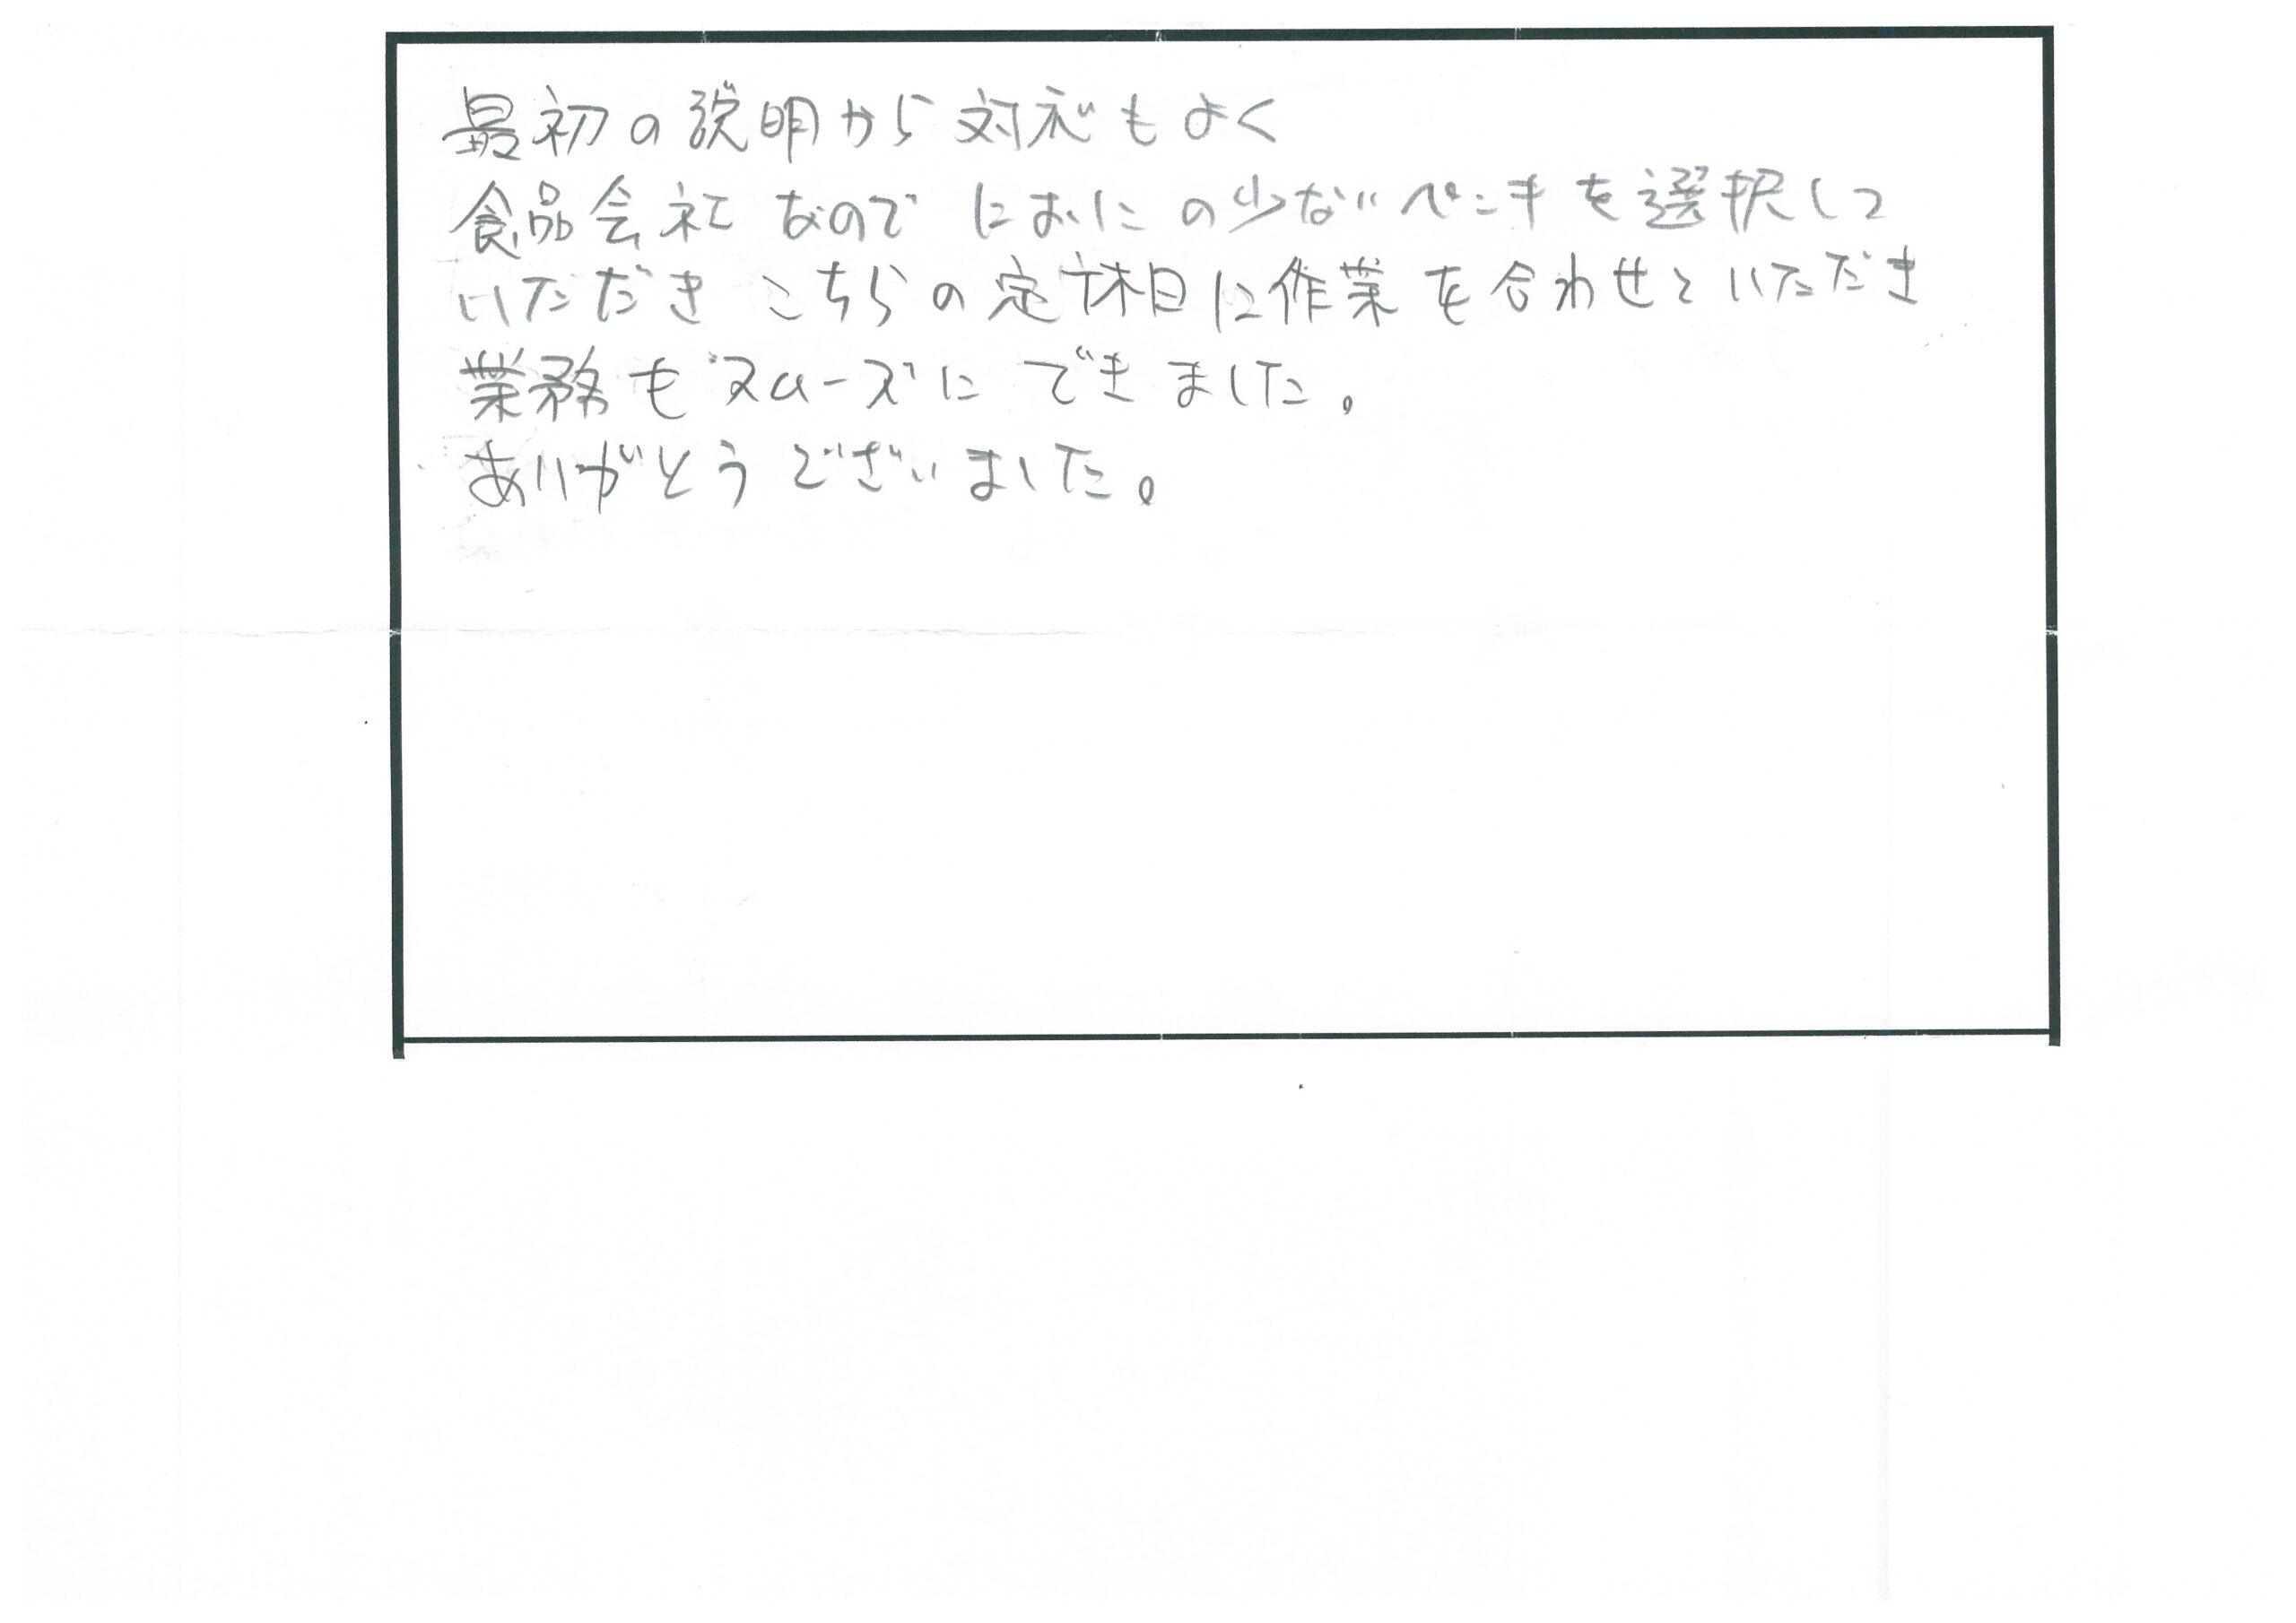 最初の説明から対応もよく
食品会社なのでにおいの少ないペンキを選択して
いただきこちらの定休日に作業を合わせていただき
業務もスムーズにできました。
ありがとうございました。